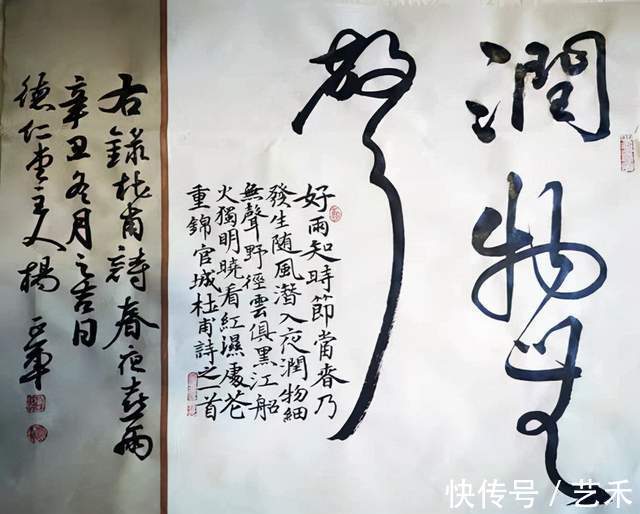 潤物無
聲
好雨知時節當春乃
發生随風潛入夜潤物細
無聲野徑雲俱黑江船
火獨明曉看紅濕處花
重錦官城杜甫詩之首
右錄杜甫詩春夜喜雨
辛丑冬月之吉日
德仁堂主人楊
快传号／艺禾